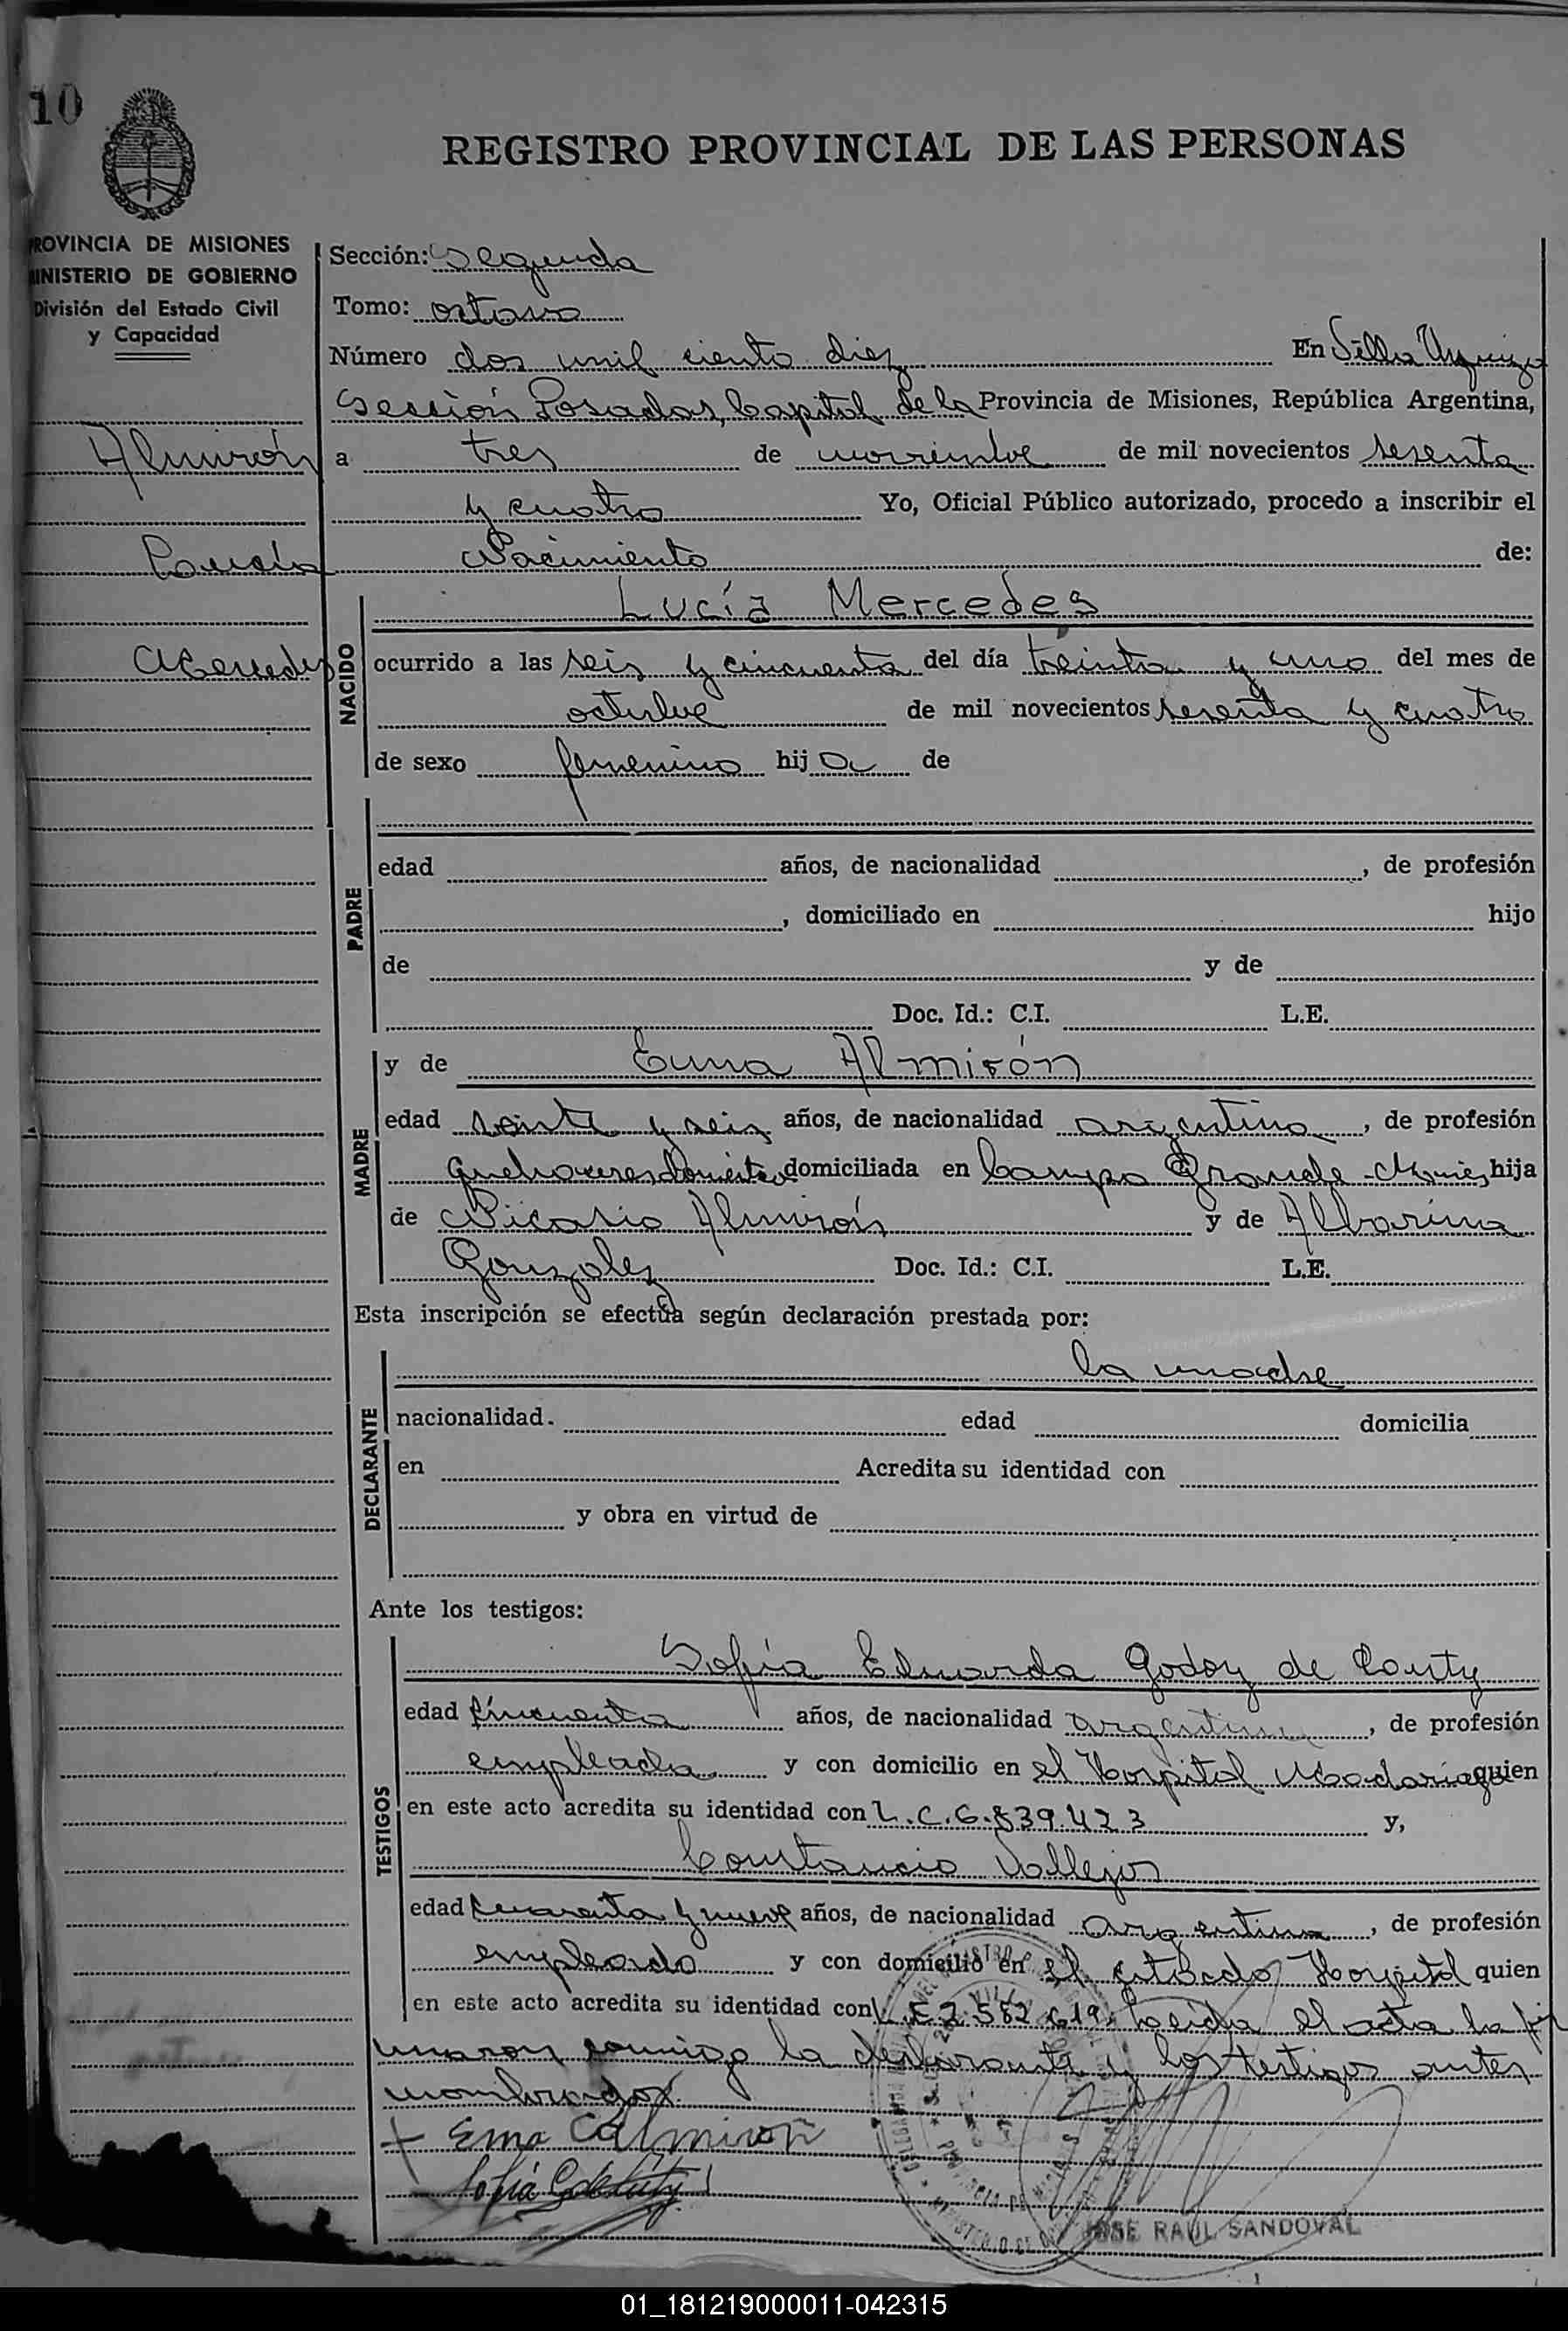 10
REGISTRO PROVINCIAL DE LAS PERSONAS
PROVINCIA DE MISIONES
MINISTERIO DE GOBIERNO
División del Estado Civil
y Capacidad
Almirón
Lucía
Mercedes
Sección: Segunda
Tomo: octavo
Número dos mil ciento diez En Villa Urquiza
Sección Posadas, Capital de la Provincia de Misiones, República Argentina,
a tres de noviembre de mil novecientos sesenta
y cuatro Yo, Oficial Público autorizado, procedo a inscribir el
Nacimiento de:
NACIDO
Lucía Mercedes
ocurrido a las seis y cincuenta del día treinta y uno del mes de
octubre de mil novecientos sesenta y cuatro
de sexo femenino hija de
PADRE
edad años, de nacionalidad , de profesión
, domiciliado en hijo
de y de
Doc. Id.: C.I. L.E.
MADRE
y de Ema Almirón
edad veinte y seis años, de nacionalidad argentina, de profesión
quehaceres domésticos domiciliada en Campo Grande - Mnes hija
de Nicasio Almirón y de Albarina
Gonzalez Doc. Id.: C.I. L.E.
Esta inscripción se efectúa según declaración prestada por:
DECLARANTE
la madre
nacionalidad. edad domicilia
en Acredita su identidad con
y obra en virtud de
Ante los testigos:
TESTIGOS
Sofía Eduarda Godoy de Couty
edad cincuenta años, de nacionalidad argentina, de profesión
empleada y con domicilio en el Hospital Madariaga quien
en este acto acredita su identidad con L.C.6.839.423 y,
Constancio Vallejos
edad cuarenta y nueve años, de nacionalidad argentina, de profesión
empleado y con domicilio en el citado Hospital quien
en este acto acredita su identidad con L.E 2.582.619. Leída el acta la fir
maron conmigo la declarante y los testigos antes
nombrados.
Ema Almiron
Sofía G de Couty
JOSE RAUL SANDOVAL
01_181219000011-042315